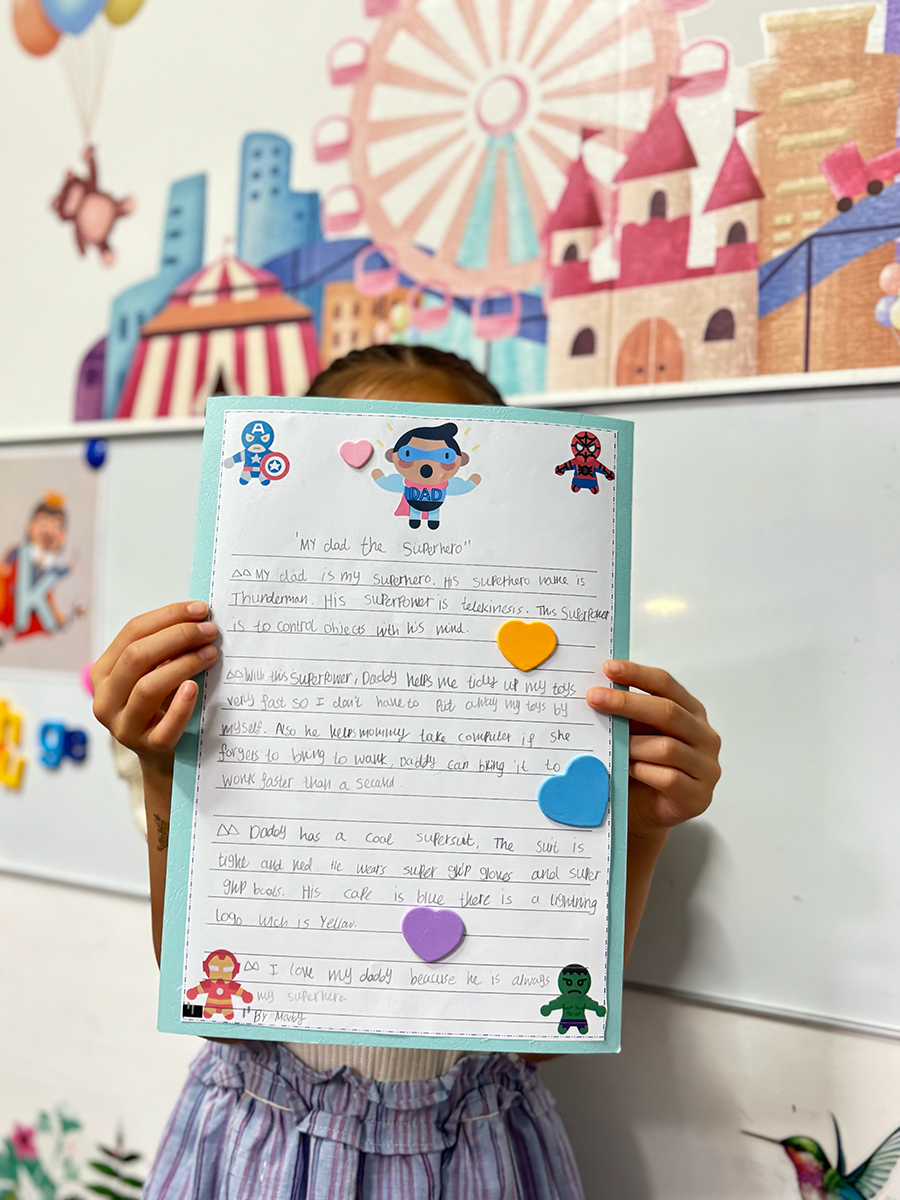 A
DAD
"My dad the Superhero"
My dad is my superhero. His superhero name is
Thunderman. His superpower is telekinesis. This Superpower
is to control objects with his mind.
With this superpower, Daddy helps me tidy up my toys
very fast so I don't have to put away my toys by
myself. Also he helps mommy take computer if she
forgets to bring to work, Daddy can bring it to
work faster than a second.
Daddy has a cool supersuit. The suit is
tight and red. He wears super grip gloves and super
grip boots. His cape is blue there is a lightning
logo wich is Yellow.
I love my daddy beacuse he is always
my superhero.
"By Mocly
k
ge